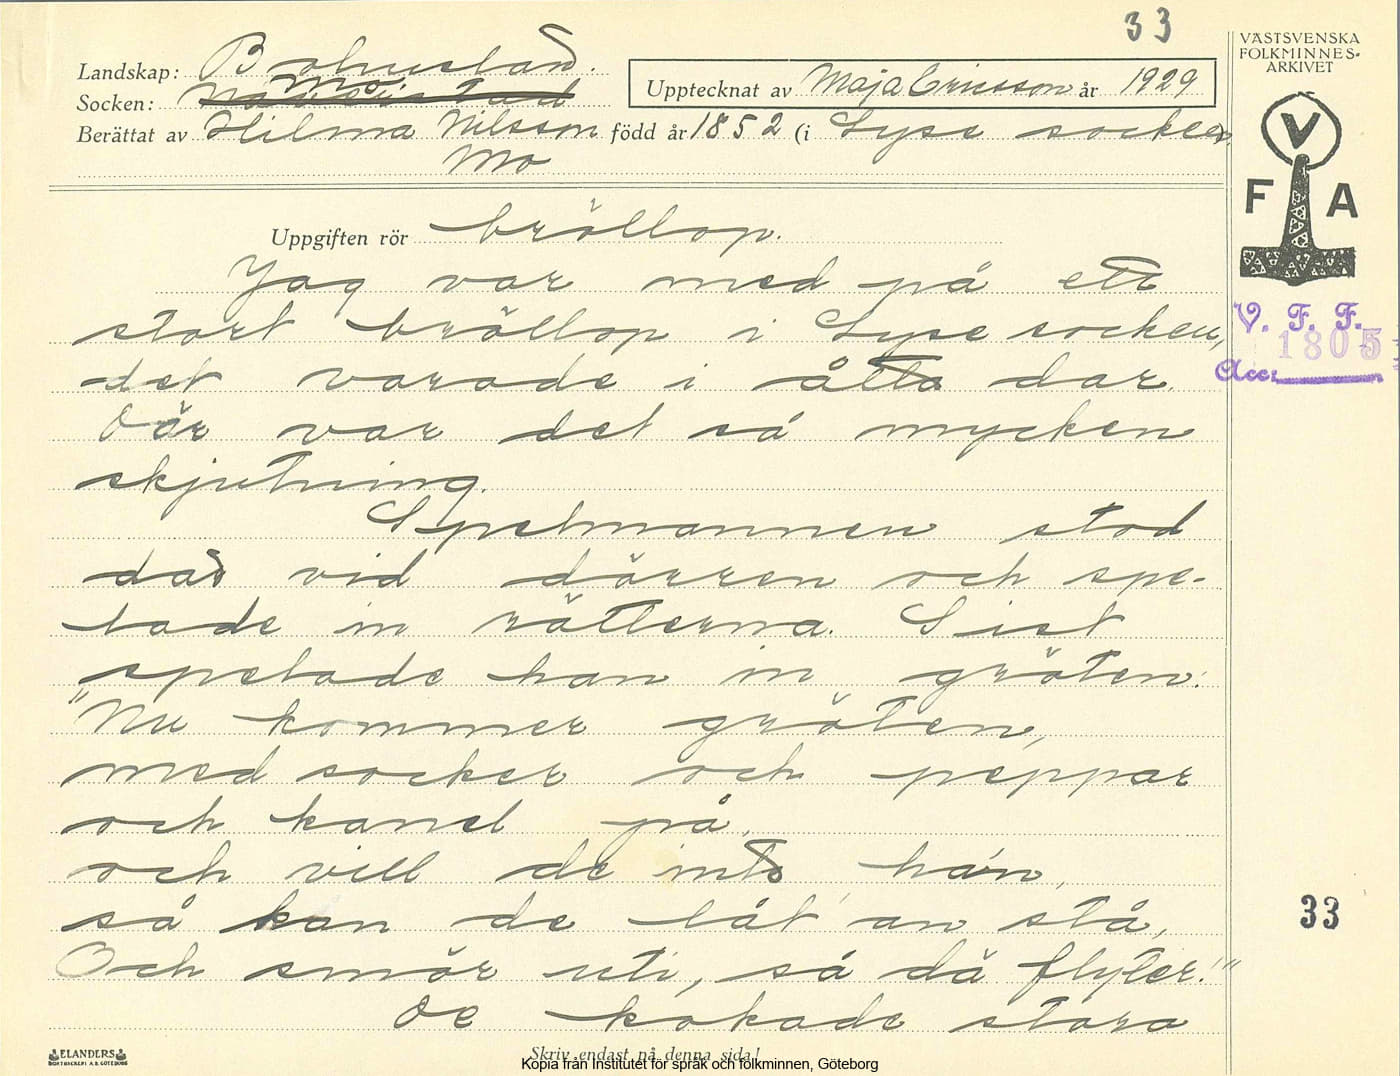 33
VÄSTSVENSKA
FOLKMINNES-
ARKIVET
Landskap: Bohuslän.
Socken: Mo
Upptecknat av Maja Ericsson år 1929
Berättat av Hilma Nilsson född år 1852 (i Lyse socken.
Mo
V
F A
Uppgiften rör bröllop.
Jag var med på ett
stort bröllop i Lyse socken,
det varade i åtta dar.
Där var det så mycken
skjutning.
Spelmannen stod
där vid dörren och spe-
lade in rätterna. Sist
spelade han in gröten:
"Nu kommer gröten,
med socker och peppar
och kanel på,
och vill de inte ha'n,
så kan de låt' an stå,
Och smör uti, så då flyter!"
De kokade stora
V. F. F.
1805
Acc:
33
ELANDERS
BOKTRYCKERI A.B. GÖTEBORG
Skriv endast på denna sida!
Kopia från Institutet för språk och folkminnen, Göteborg